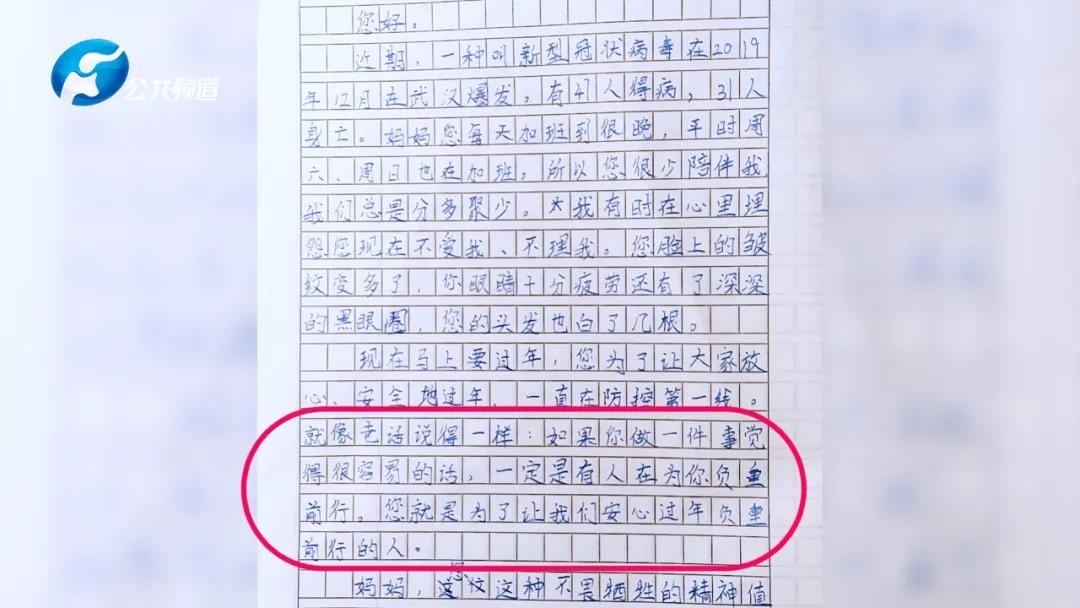 公共频道
您好。
近期，一种叫新型冠状病毒在2019
年12月在武汉爆发。有41人得病，31人
身亡。妈妈您每天加班到很晚，平时周
六、周日也在加班。所以您很少陪伴我，
我们总是分多聚少。我有时在心里埋
怨您现在不爱我、不理我。您脸上的皱
纹变多了，你眼睛十分疲劳还有了深深
的黑眼圈，您的头发也白了几根。
现在马上要过年，您为了让大家放
心、安全地过年，一直在防控第一线。
就像老话说得一样：如果你做一件事觉
得很容易的话，一定是有人在为你负重
前行。您就是为了让我们安心过年负重
前行的人。
妈妈，您这种不畏牺牲的精神值